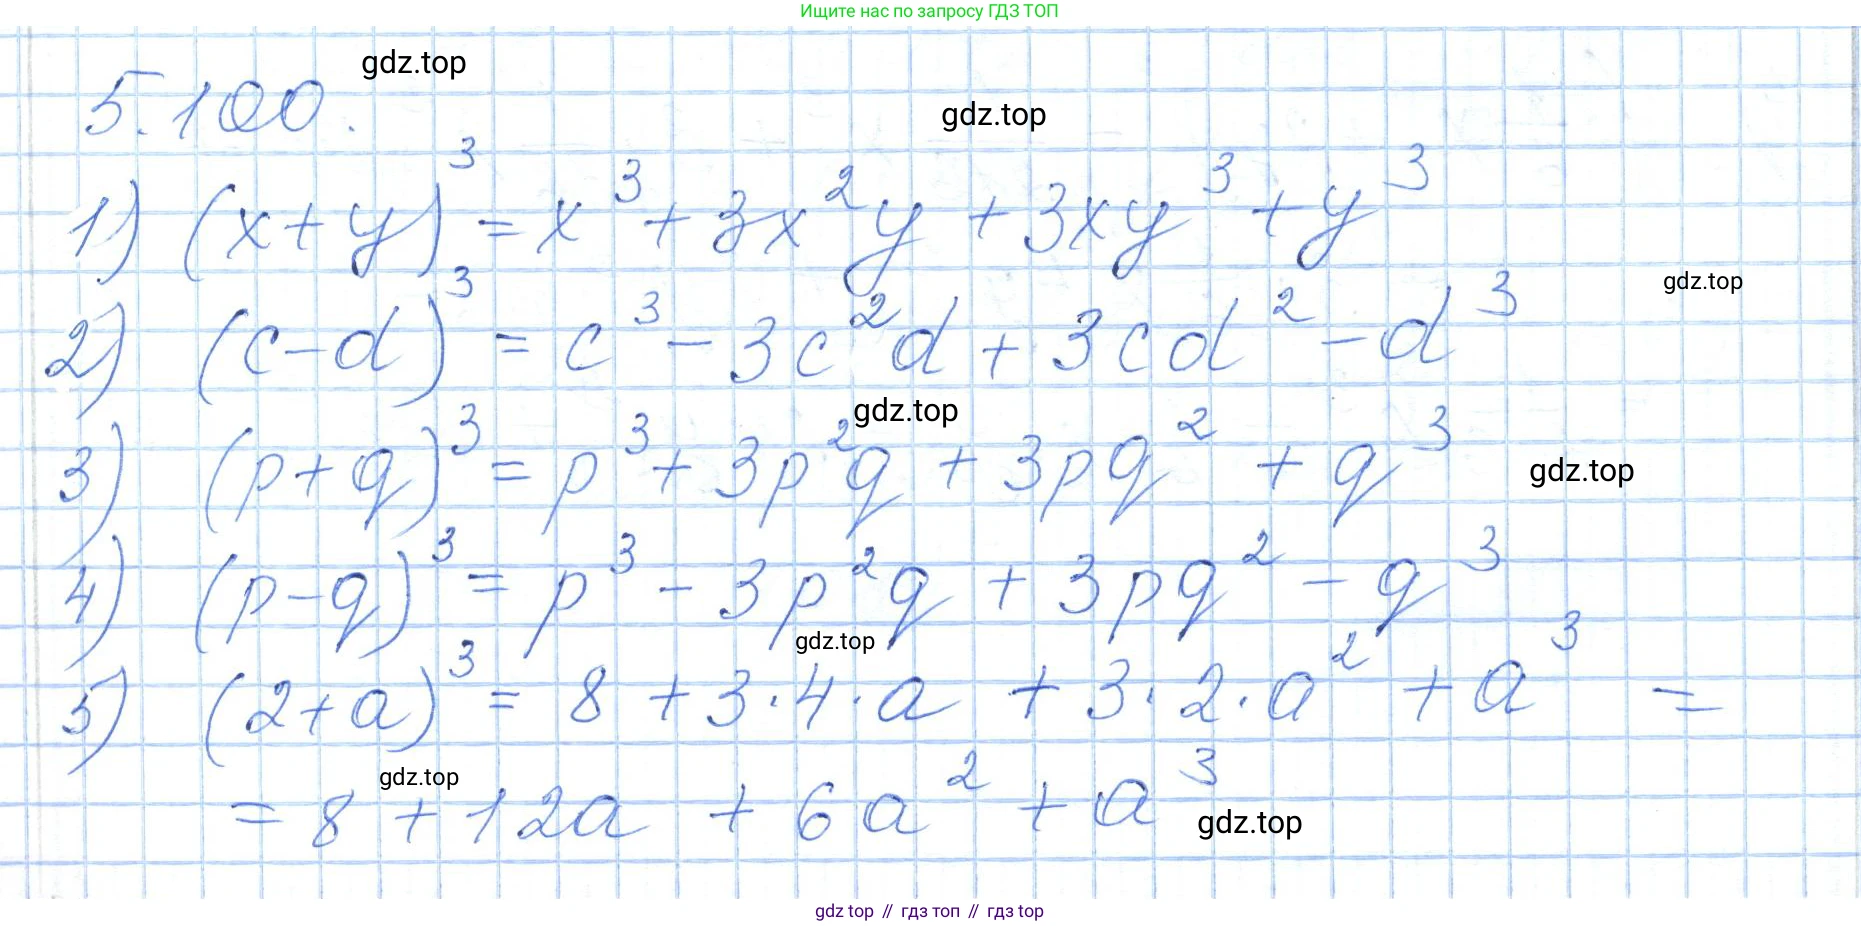 Ищите нас по запросу ГДЗ ТОП
gdz.top
5.100.
gdz.top
1) (x+y)³ = x³ + 3x²y + 3xy³ + y³
gdz.top
2) (c-d)³ = c³ - 3c²d + 3cd² - d³
gdz.top
3) (p+q)³ = p³ + 3p²q + 3pq² + q³
gdz.top
4) (p-q)³ = p³ - 3p²q + 3pq² - q³
gdz.top
5) (2+a)³ = 8 + 3·4·a + 3·2·a² + a³ =
gdz.top
= 8 + 12a + 6a² + a³
gdz.top
gdz top // гдз топ // гдз top